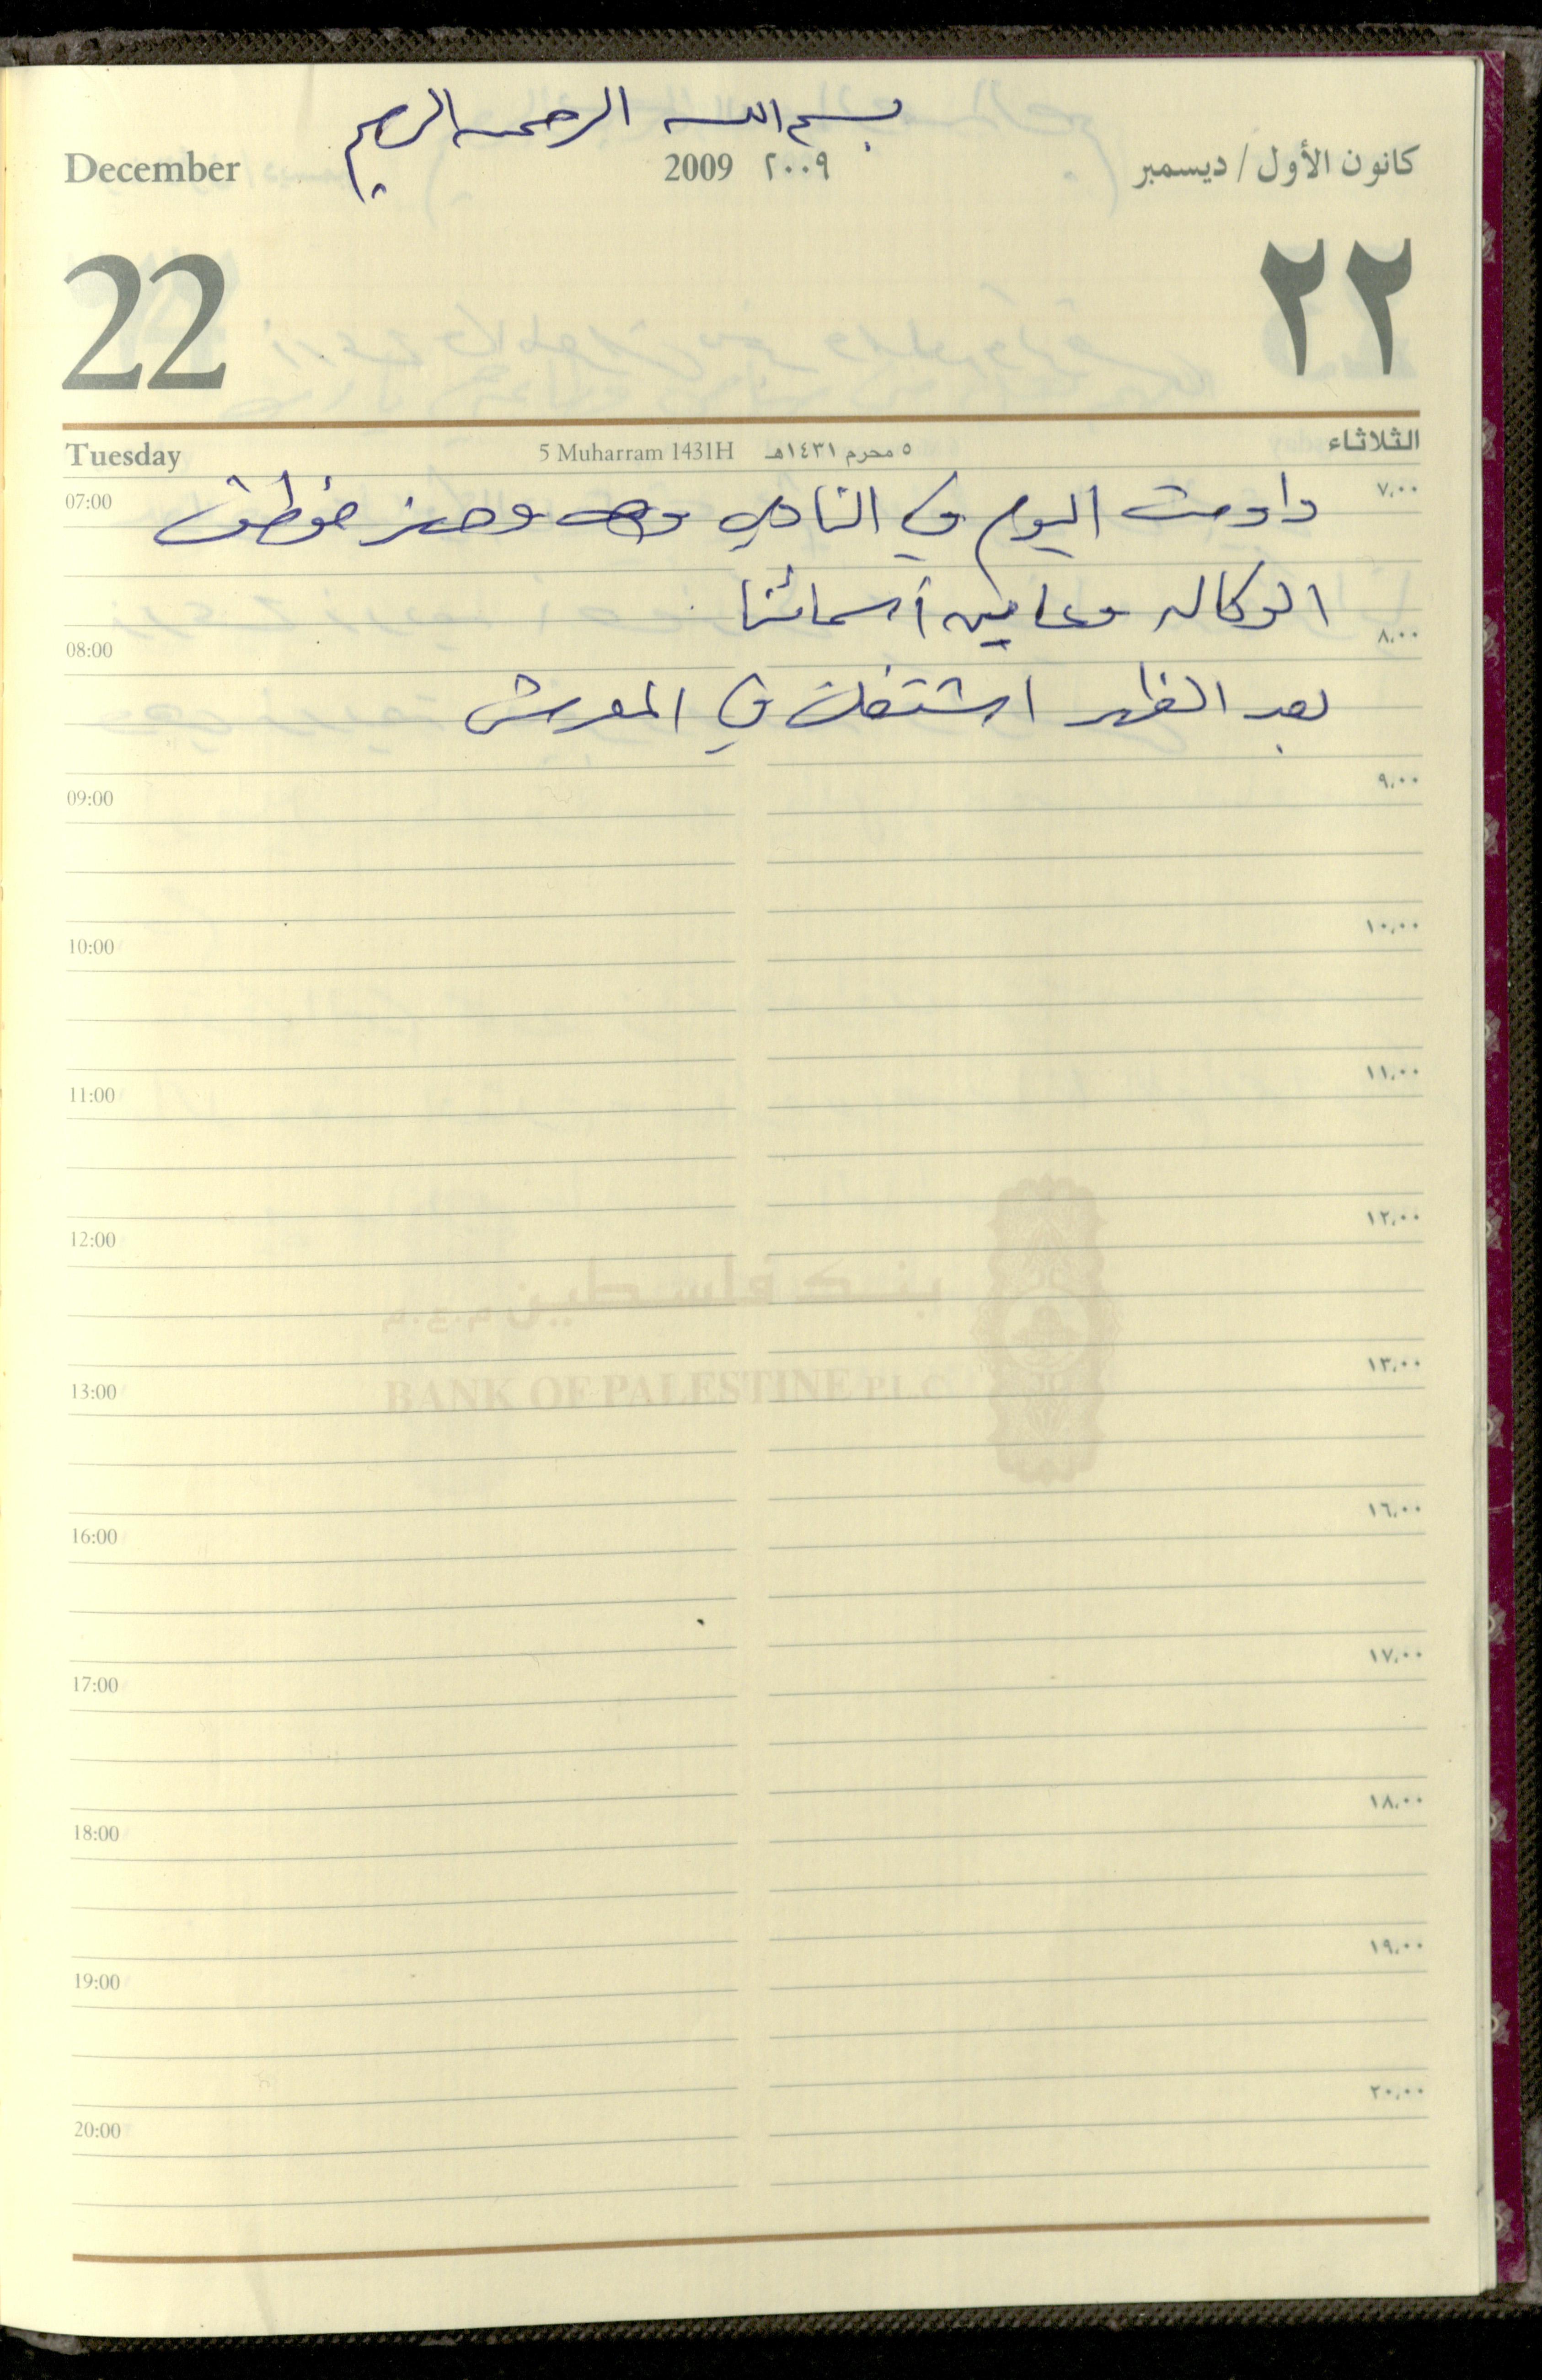 بسم الله الرحمن الرحيم
December 2009 ٢٠٠٩ كانون الأول / ديسمبر
22 ٢٢
Tuesday 5 Muharram 1431H ٥ محرم ١٤٣١هـ الثلاثاء
07:00 ٧,٠٠
داومت اليوم في النادي وحضر موظف
الوكاله وعاين أسمائنا
08:00 ٨,٠٠
بعد الظهر اشتغلت في المعرش
09:00 ٩,٠٠
10:00 ١٠,٠٠
11:00 ١١,٠٠
12:00 ١٢,٠٠
بنك فلسطين م.ع.م
13:00 ١٣,٠٠
BANK OF PALESTINE P.L.C
16:00 ١٦,٠٠
17:00 ١٧,٠٠
18:00 ١٨,٠٠
19:00 ١٩,٠٠
20:00 ٢٠,٠٠